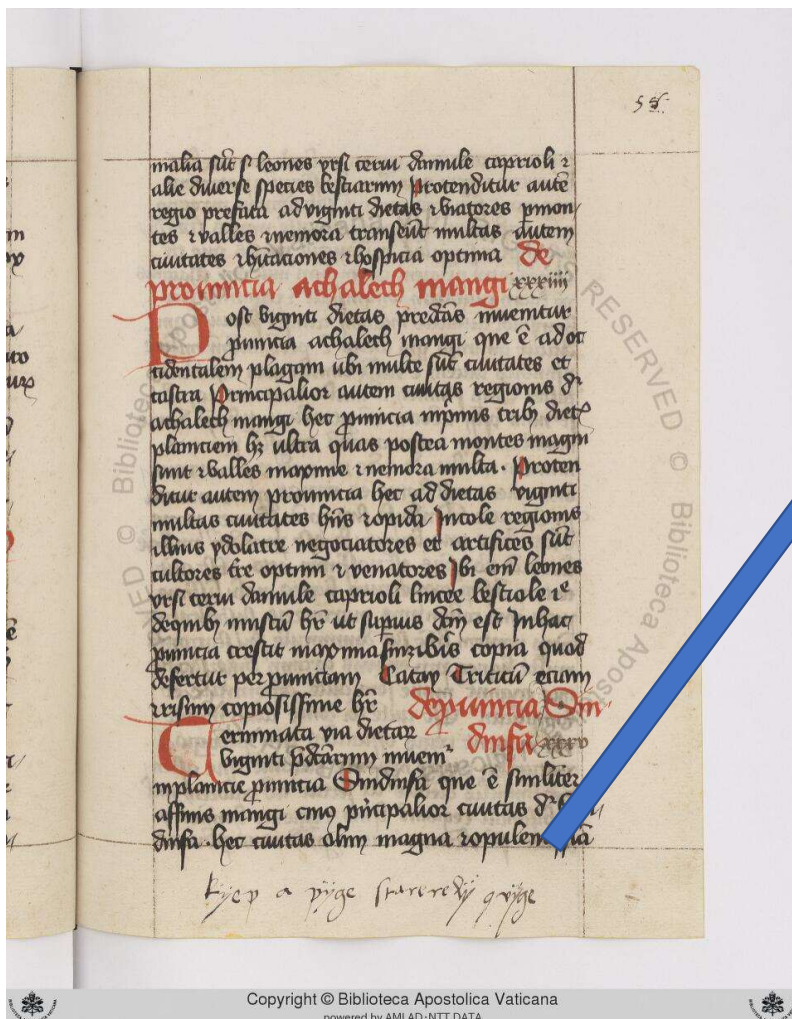 58.
malia sūt s' leones vrsi cerui dāmule caprioli ⁊
alie diuerse species bestiarum Protenditur autē
regio prefata ad viginti dietas ⁊ viatores p mon
tes ⁊ valles ⁊ nemora transeūt multas autem
ciuitates ⁊ hītaciones ⁊ hospicia optima de
prouincia achalech mangi xxxiiii
Post viginti dietas predc̄as inuenitur
puincia achalech mangi que ē ad oc
cidentalem plagam ubi multe sūt ciuitates et
castra Principalior autem ciuitas regionis dr
achalech mangi hec puincia in primis trib9 diet
planiciem hꝫ ultra quas postea montes magni
sunt ⁊ valles maxime ⁊ nemora multa. Proten
ditur autem prouincia hec ad dietas viginti
multas ciuitates hn̄s ⁊ opida Incole regionis
illius ydolatre negociatores et artifices sūt
cultores tr̄e optimi ⁊ venatores Ibi em̄ leones
vrsi cerui dāmule caprioli lincee bestiole
de quib9 muscū hr̄ ut superius dc̄m est In hac
puincia crescit maxima copia quod
defertur per puinciam Catay Triticū eciam
⁊ risum copiosissime hr̄ de puincia Sin
Terminata via dietar dinfa xxxv
viginti pdc̄arum inuenit
in planicie puincia Sindinfa que ē similiter
affinis mangi cuius pncipalior ciuitas dr
dinfa. hec ciuitas olim magna ⁊ opulen
a
RESERVED © Biblioteca Aposto
ED © Biblioteca Apos
Copyright © Biblioteca Apostolica Vaticana
powered by AMLAD-NTT DATA